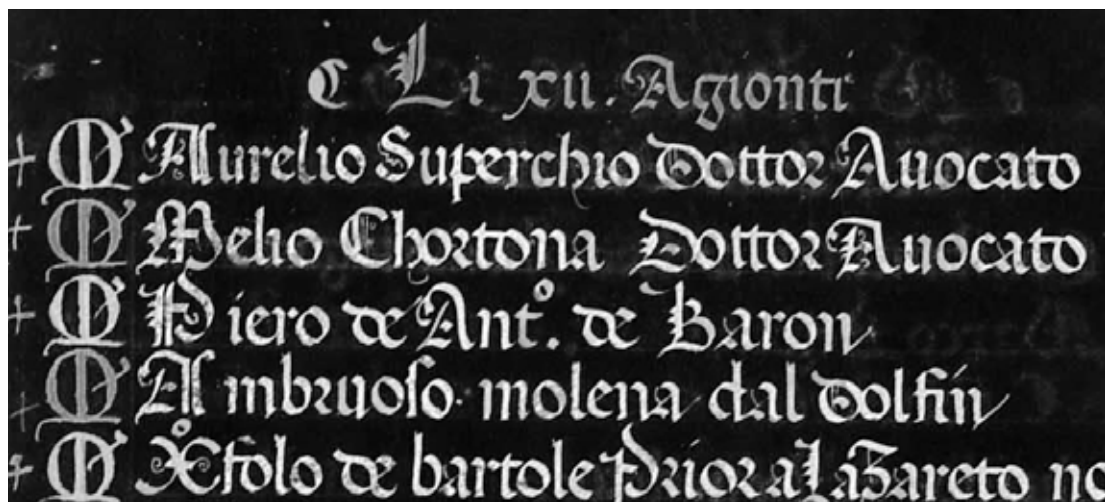 C Li xii. Agionti
+ M Aurelio Superchio Dottor Auocato
+ M Melio Chortona Dottor Auocato
+ M Piero de Antº. de Baron
+ M Ambruoso molena dal Dolfin
+ M Xº folo de bartole Prior a Lazareto no